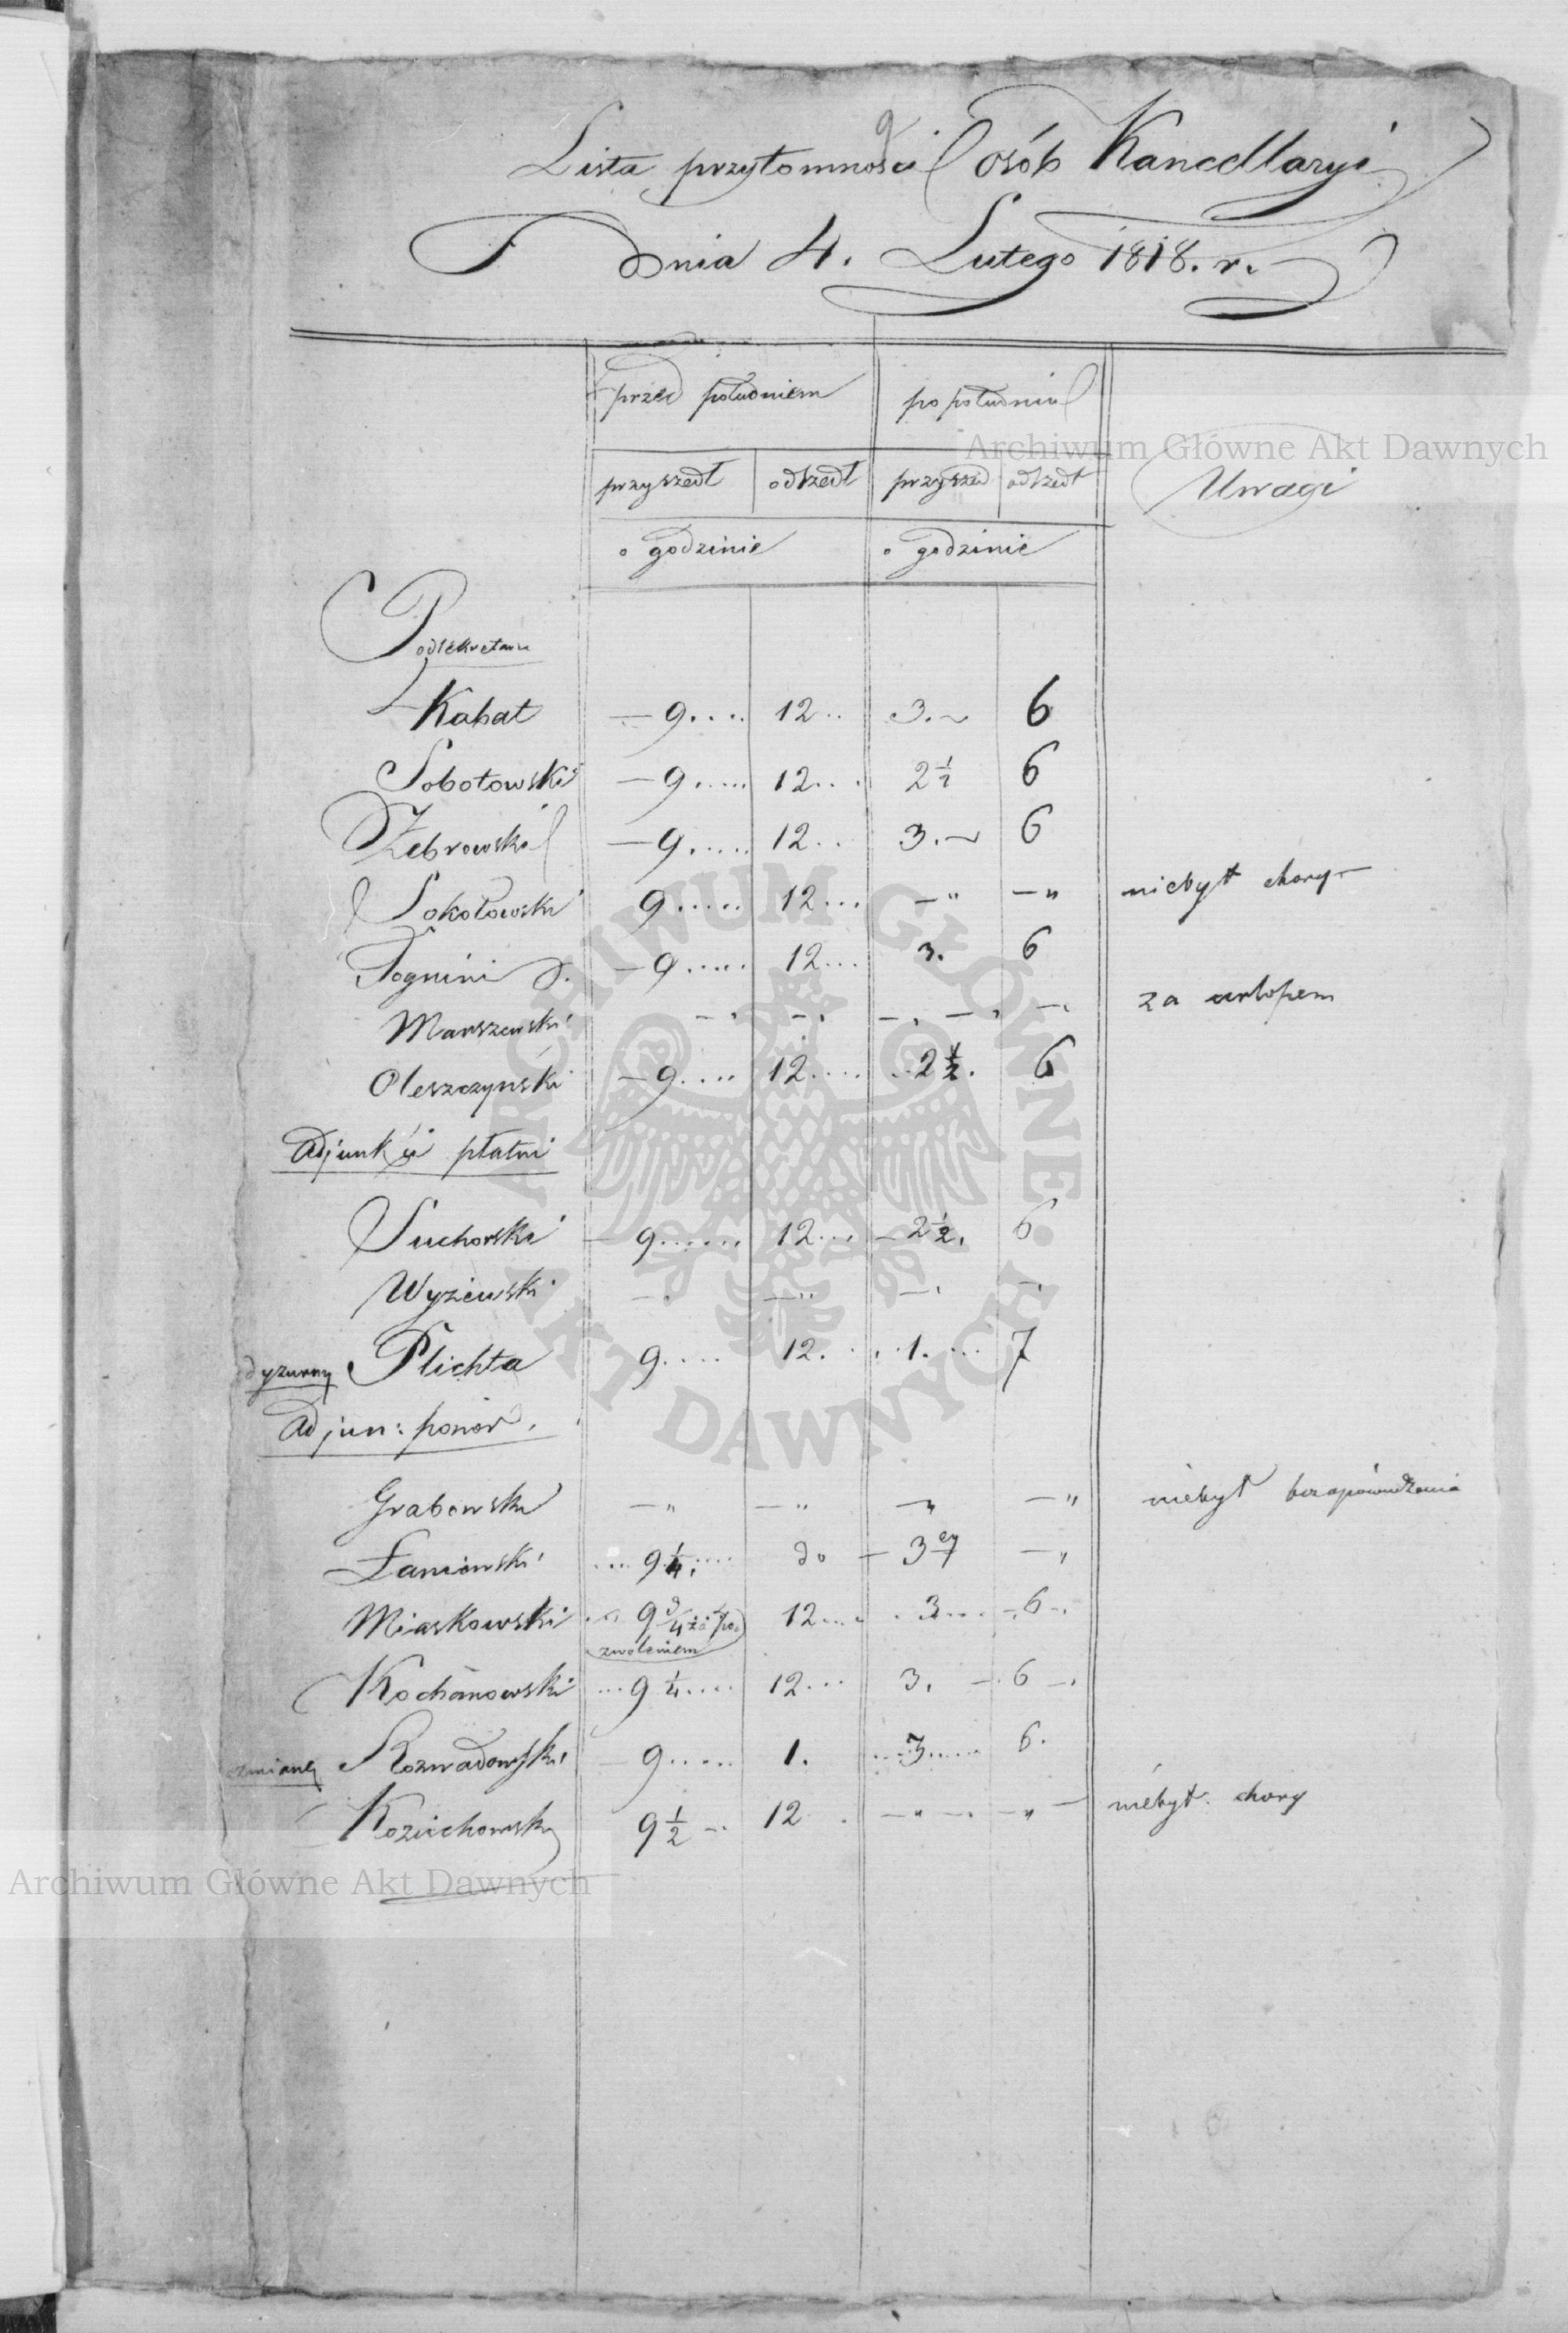 Lista przytomności osób Kancellaryi
Dnia 4. Lutego 1818. r.
przed południem po południu
Archiwum Główne Akt Dawnych
przyszedł odszedł przyszed odszedł Uwagi
o godzinie o godzinie
Podsekretarze
Kabat — 9.... 12.. 3.~ 6
Sobotowski — 9..... 12... 2 1/2 6
Żebrowski — 9..... 12... 3.~ 6
Sokołowski 9..... 12... — " — " niebył chory —
Tognini — 9..... 12... 3. 6
Marszewski — . — . — . — . — . za urlopem
Oleszczynski — 9.... 12.... ..2 1/2. 6
Adjunkci płatni
Suchorski — 9...... 12... — 2 1/2. 6
Wyżewski — . — .. — . — .
dyżurny Plichta 9.... 12. . 1. ... 7
Adjun: honor.
Grabowski — " — " — " — " niebył bez opowiedzenia
Łaniewski ... 9 1/4. .... do — 3ey — "
Miaskowski 9 3/4 za po 12.... . 3... — . 6 — .
zwoleniem
Kochanowski ... 9 1/4.... 12... 3. — . 6 — .
zmianę Rozwadowski — 9..... 1. ....3..... 6.
Koziuchowski 9 1/2 — .. 12 . — " — . — " — niebył. chory
Archiwum Główne Akt Dawnych
ARCHIWUM GŁÓWNE AKT DAWNYCH